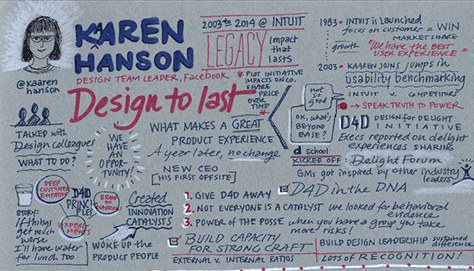 KAREN
HANSON
@kaaren
hanson
DESIGN TEAM LEADER, Facebook
Design to last
2003 to 2014 @ INTUIT
LEGACY
Impact
that
lasts
* PLOT INITIATIVE
IMPACTS ON CO.
SHARE
PRICE
OVER
TIME
TALKED WITH
Design colleagues
WHAT TO DO?
WE
HAVE
AN
OPPOR-
TUNITY!
WHAT MAKES A GREAT
PRODUCT EXPERIENCE
A year later, no change
NEW CEO
(HIS FIRST OFFSITE)
DEEP
CUSTOMER
EMPATHY
D4D
PRINCI-
PLES
STORY:
If things
get much
worse
I'll have water
for lunch too
Created
INNOVATION
CATALYSTS
WOKE UP the
PRODUCT PEOPLE
1. GIVE D4D AWAY
2. NOT EVERYONE IS A CATALYST
3. POWER OF THE POSSE
we looked for behavioral
evidence
when you have a group you take
more risks!
BUILD CAPACITY
FOR STRONG CRAFT
EXTERNAL V. INTERNAL RATIOS
1983 • INTUIT is launched
focus on customer = WIN
MARKET SHARE
growth
"We have the BEST
USER EXPERIENCE"
2003 • KAREN JOINS, jumps in
usability benchmarking
INTUIT V. COMPETITOR
→ SPEAK TRUTH TO POWER
not
so
good
OK, what's
BEYOND
EASE?
D4D DESIGN FOR DELIGHT
INITIATIVE
Execs reported on delight
experiences SHARING
d school
KICKED OFF
Delight Forum
GMs got inspired by other industry
leaders
D4D in the DNA
BUILD DESIGN LEADERSHIP
sustained
difference
LOTS of RECOGNITION!